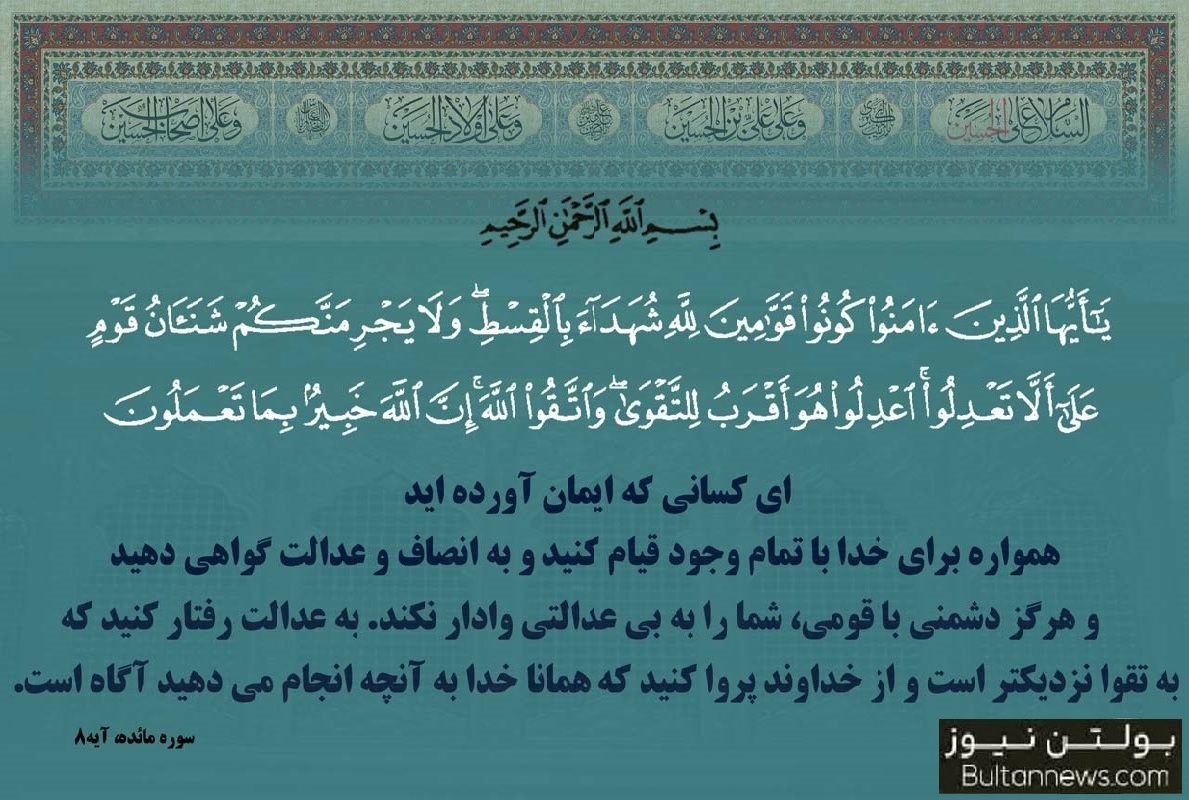 السلام علی الحسین
وعلی علی بن الحسین
وعلی اولاد الحسین
وعلی اصحاب الحسین
بِسْمِ ٱللَّهِ ٱلرَّحْمَٰنِ ٱلرَّحِيمِ
يَٰٓأَيُّهَا ٱلَّذِينَ ءَامَنُواْ كُونُواْ قَوَّٰمِينَ لِلَّهِ شُهَدَآءَ بِٱلْقِسْطِۖ وَلَا يَجْرِمَنَّكُمْ شَنَـَٔانُ قَوْمٍ
عَلَىٰٓ أَلَّا تَعْدِلُواْۚ ٱعْدِلُواْ هُوَ أَقْرَبُ لِلتَّقْوَىٰۖ وَٱتَّقُواْ ٱللَّهَۚ إِنَّ ٱللَّهَ خَبِيرٌۢ بِمَا تَعْمَلُونَ
ای کسانی که ایمان آورده اید
همواره برای خدا با تمام وجود قیام کنید و به انصاف و عدالت گواهی دهید
و هرگز دشمنی با قومی، شما را به بی عدالتی وادار نکند. به عدالت رفتار کنید که
به تقوا نزدیکتر است و از خداوند پروا کنید که همانا خدا به آنچه انجام می دهید آگاه است.
سوره مائده، آیه۸
بولتن نیوز
Bultannews.com